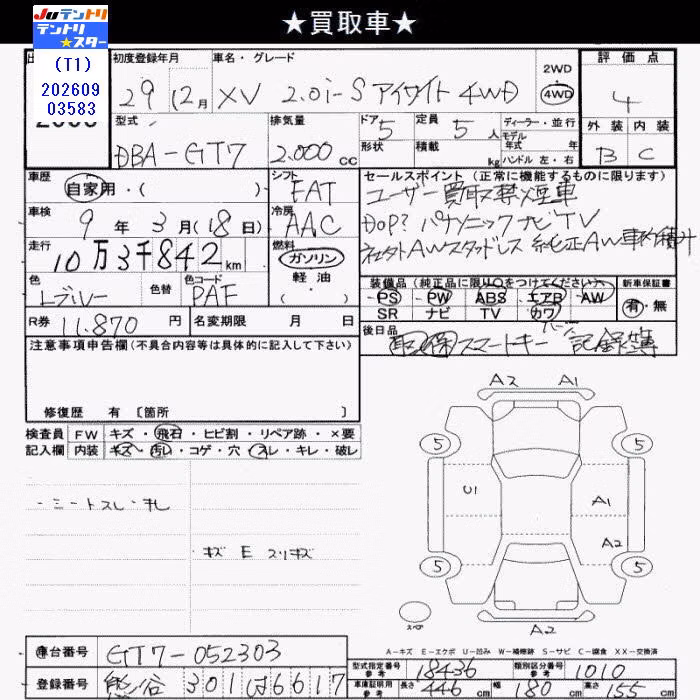 ★買取車★
Juテントリ
テントリ
★スター
(T1)
202609
03583
初度登録年月 車名・グレード 評価点
29年 12月 XV 2.0i-S アイサイト 4WD 2WD 4WD 4
型式 排気量 ドア 定員 ディーラー・並行 外装 内装
DBA-GT7 2.000cc 5 5人 モデル年式 年 B C
形状 積載 kg ハンドル 左・右
車歴 シフト セールスポイント(正常に機能するものに限ります)
自家用・( ) FAT ユーザー買取禁煙車
車検 冷房 DOP? パナソニックナビTV
9年 3月(18日) AAC 社外AWスタッドレス 純正AW車内積み
走行 燃料
10万3千842km ガソリン
軽油
・( )
色 色替 色コード 装備品(純正品に限り○をつけてください) 新車保証書
PAF PS PW ABS エアB AW 有・無
R券 11.870円 名変期限 月 日 SR ナビ TV カワ
注意事項申告欄(不具合内容等は具体的に記入して下さい) 後日品
取 保 スマートキー 記録簿
修復歴 有 〔箇所 〕
検査員 FW キズ・飛石・ヒビ割・リペア跡・×要
記入欄 内装 キズ・汚レ・コゲ・穴・スレ・キレ・破レ
キズ E スリキズ
A2 A1
5 5
U1 A1
A2
5 5
スペア
A2
A-キズ E-エクボ U-凹み W-補修跡 S-サビ C-腐食 XX-交換済
車台番号 GT7-052303
登録番号 熊谷 301 は 6617
型式指定番号 参考 18436 類別区分番号 参考 1010
車庫証明用 参考 長さ 446cm 幅 180cm 高さ 155cm